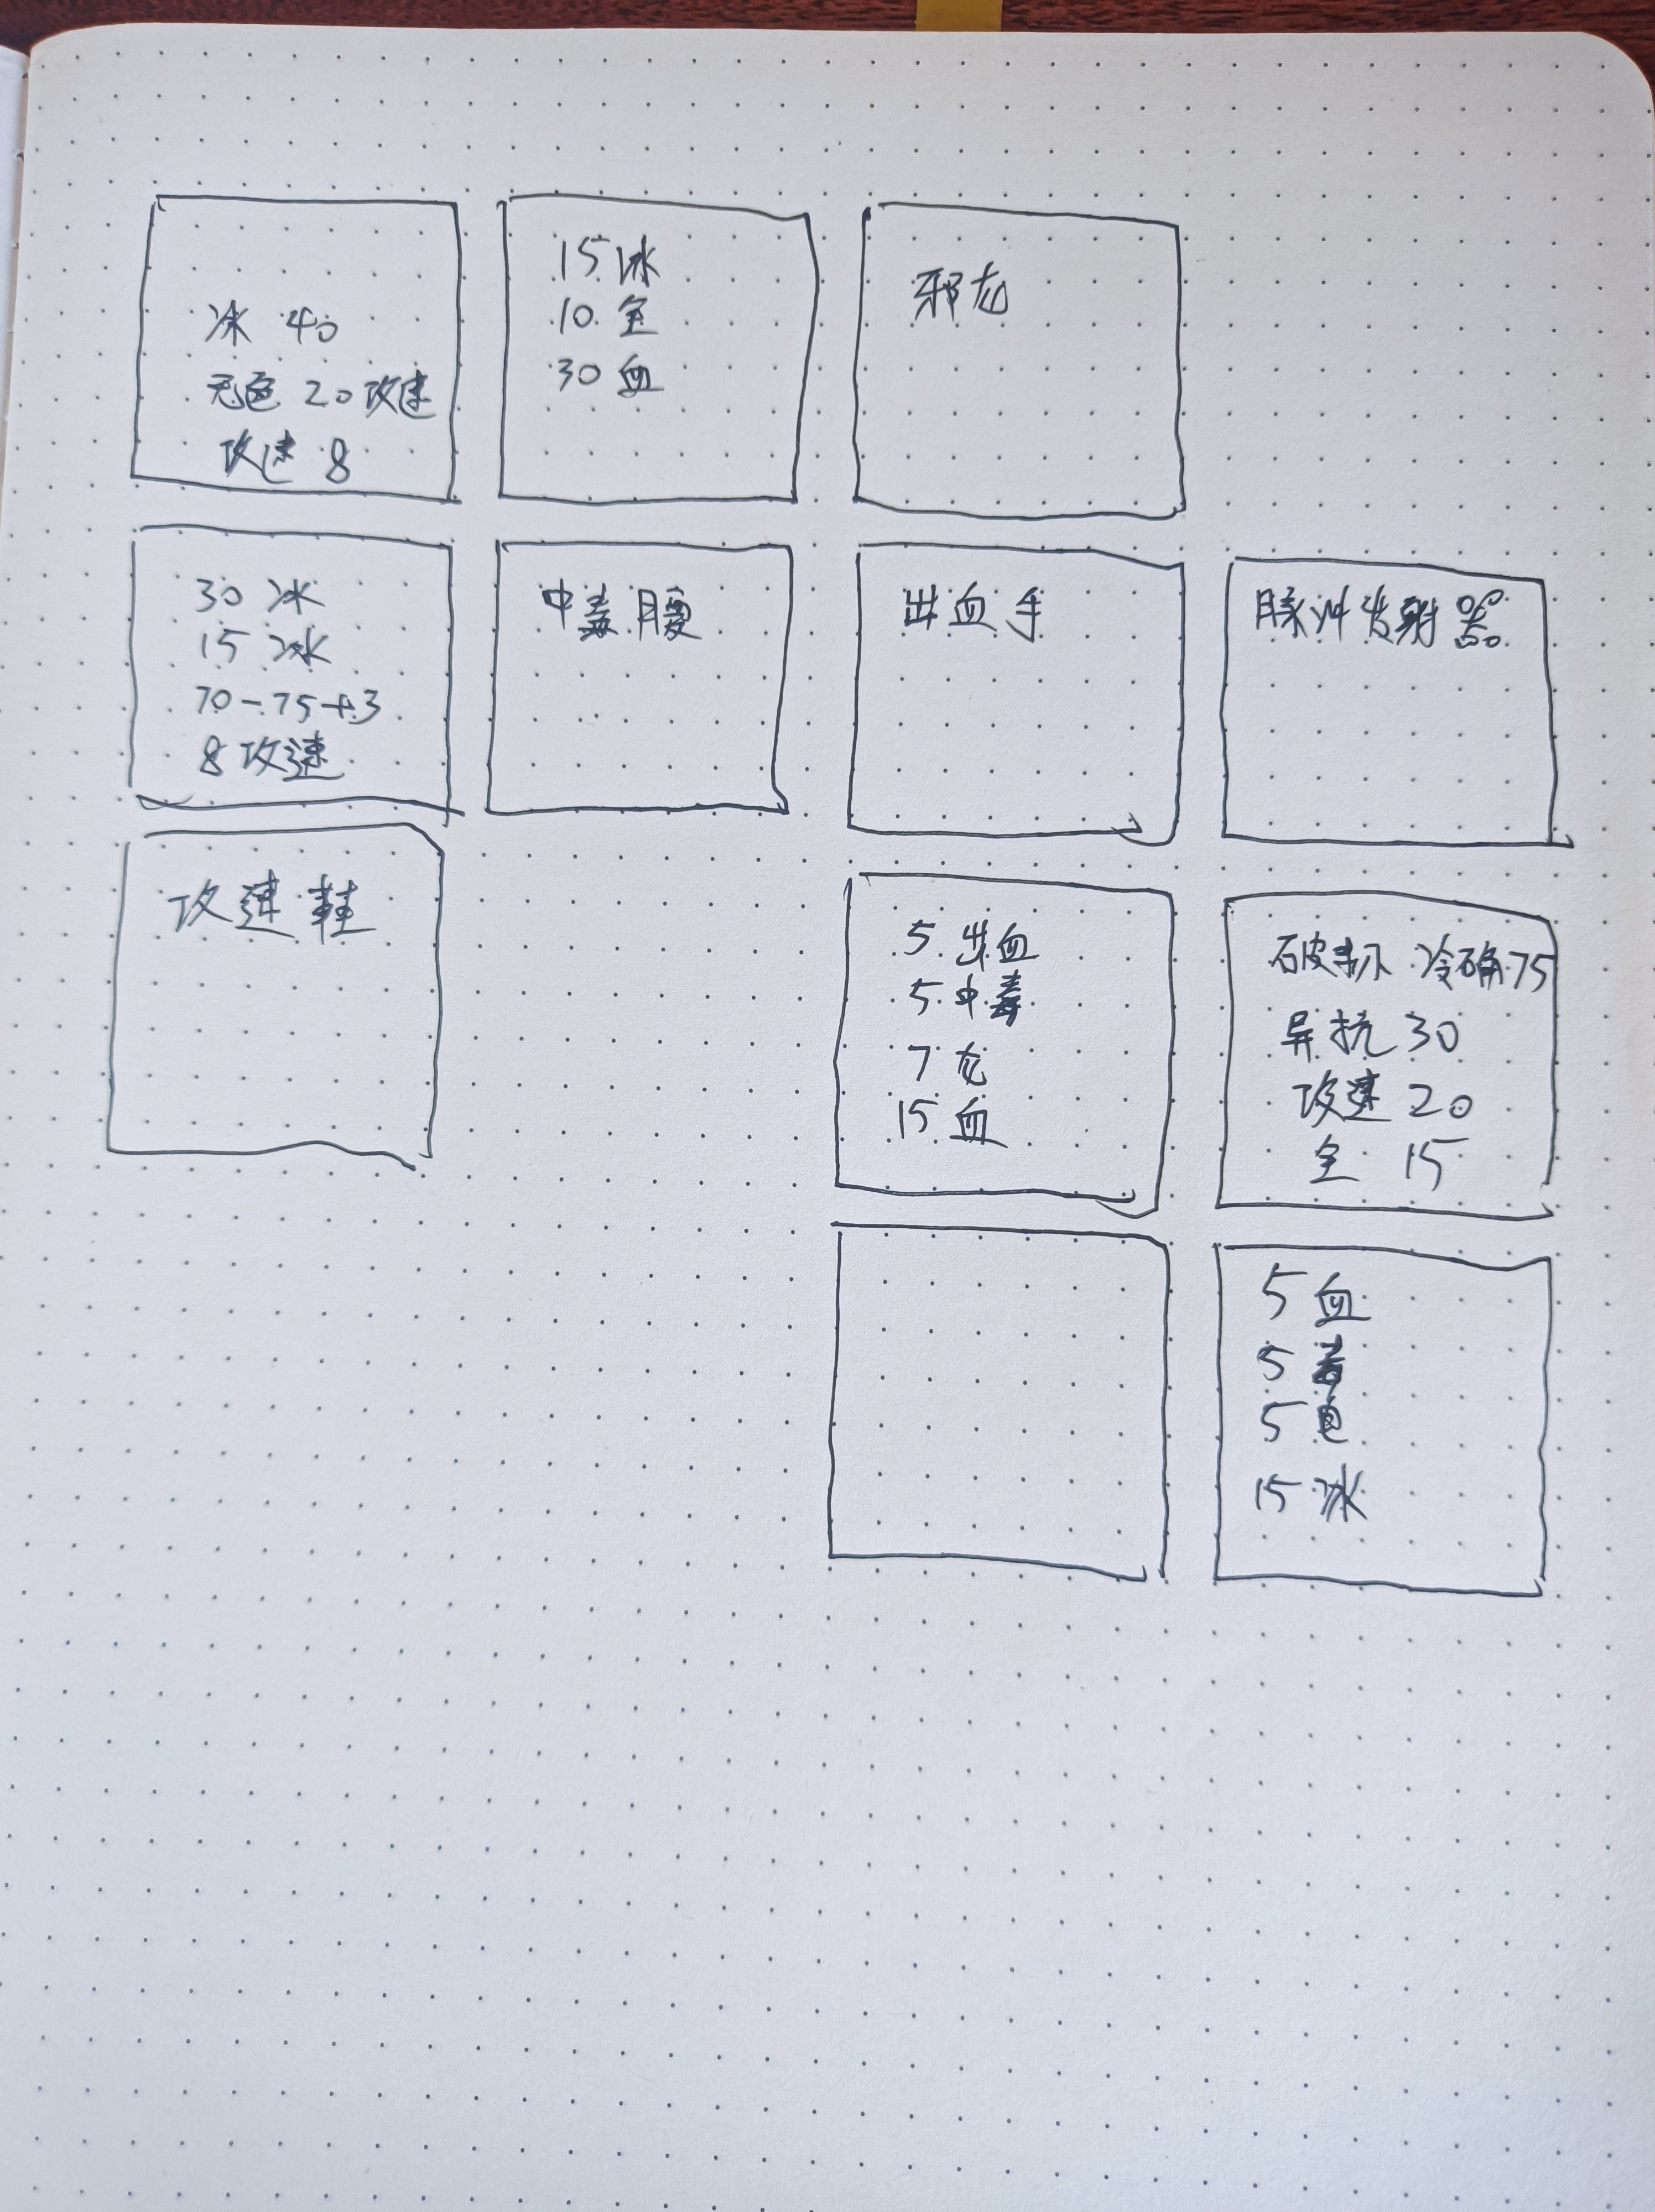 冰 40
无色 20 攻速
攻速 8
15 冰
10 全
30 血
邪龙
30 冰
15 冰
70-75+3
8 攻速
中毒腰
出血手
脉冲发射器
攻速鞋
5 出血
5 中毒
7 龙
15 血
破坏 冷确 75
异抗 30
攻速 20
全 15
5 血
5 毒
5
15 冰